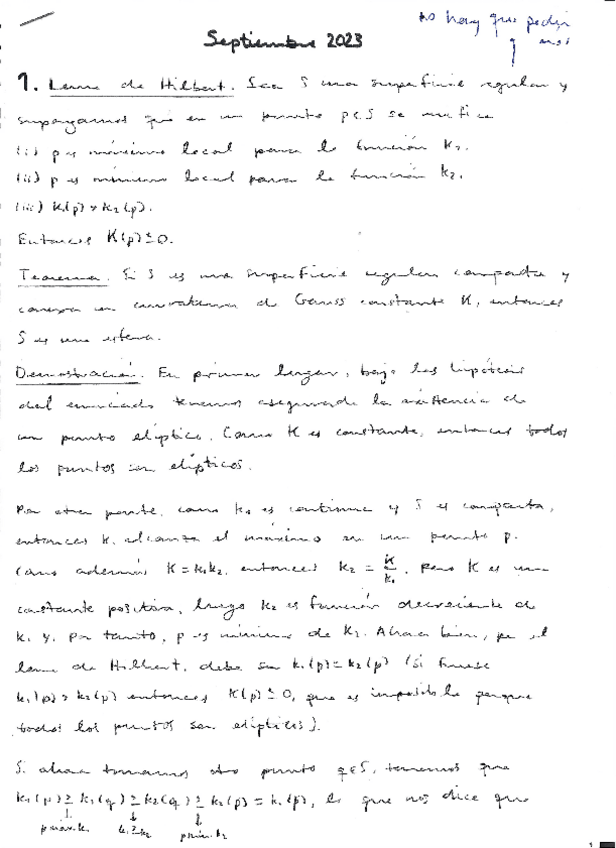 no hay que pedir
Septiembre 2023
1. Lema de Hilbert. Sea S una superficie regular y
supongamos que en un punto p∈S se verifica
(i) p es máximo local para la función k₁.
(ii) p es mínimo local para la función k₂.
(iii) k₁(p) > k₂(p).
Entonces K(p) ≤ 0.
Teorema. Si S es una superficie regular compacta y
conexa con curvatura de Gauss constante K, entonces
S es una esfera.
Demostración. En primer lugar, bajo las hipótesis
del enunciado tenemos asegurada la existencia de
un punto elíptico. Como K es constante, entonces todos
los puntos son elípticos.
Por otra parte, como k₁ es continua y S es compacta,
entonces k₁ alcanza el máximo en un punto p.
Como además K = k₁k₂, entonces k₂ = K/k₁, pero K es una
constante positiva, luego k₂ es función decreciente de
k₁ y, por tanto, p es mínimo de k₂. Ahora bien, por el
lema de Hilbert, debe ser k₁(p) = k₂(p) (si fuese
k₁(p) > k₂(p) entonces K(p) ≤ 0, que es imposible porque
todos los puntos son elípticos).
Si ahora tomamos otro punto q∈S, tenemos que
k₁(p) ≥ k₁(q) ≥ k₂(q) ≥ k₂(p) = k₁(p), lo que nos dice que
↓ ↓ ↓
p máx. k₁ k₁≥k₂ p mín. k₂